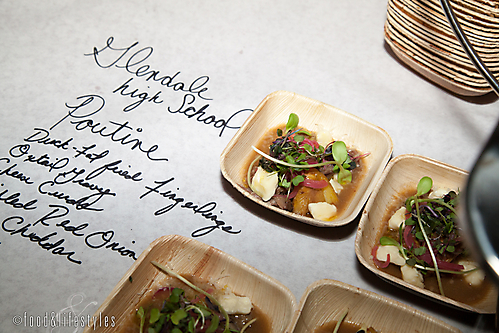 Glendale
high School
Poutine
Duck-Fat fried Fingerlings
Oxtail Gravy
Curds
Red Onion
Cheddar
©food&lifestyles